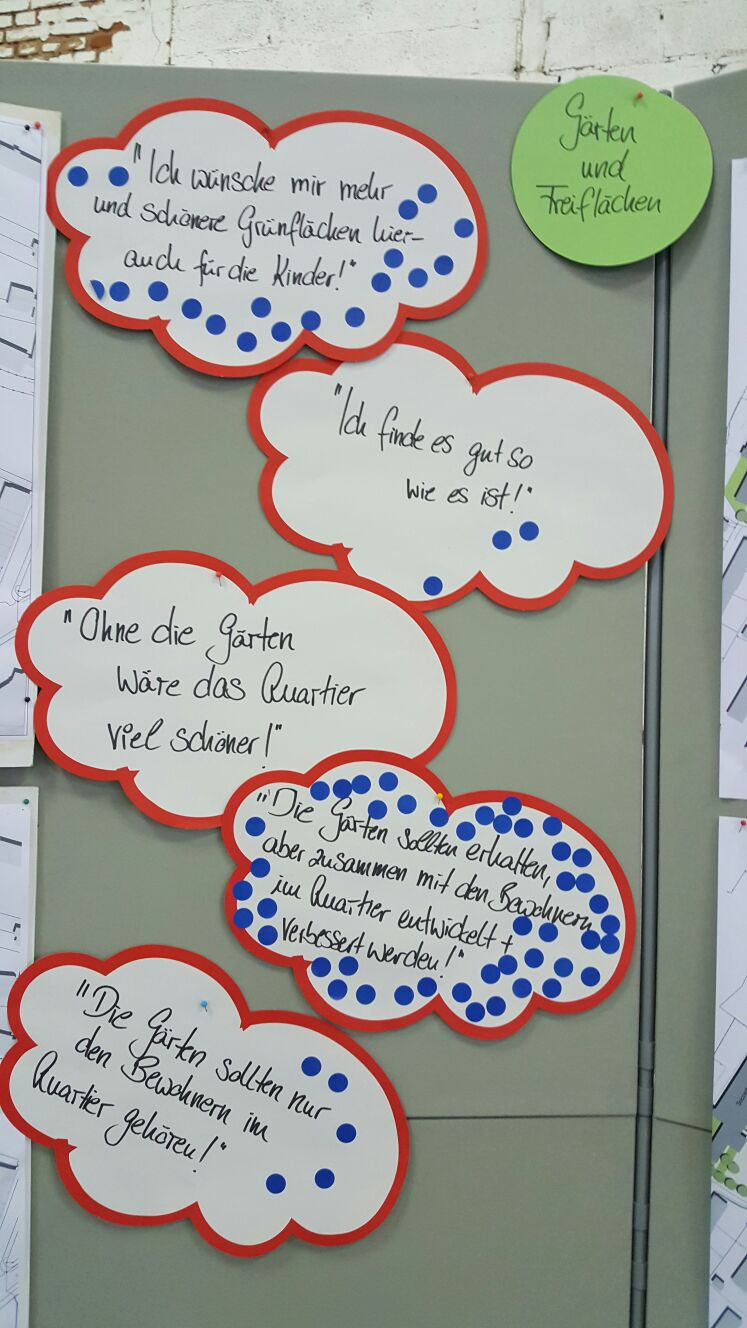 Gärten
und
Freiflächen
"Ich wünsche mir mehr
und schönere Grünflächen hier-
auch für die Kinder!"
"Ich finde es gut so
wie es ist!"
"Ohne die Gärten
wäre das Quartier
viel schöner!"
"Die Gärten sollten erhalten,
aber zusammen mit den Bewohnern
im Quartier entwickelt +
verbessert werden!"
"Die Gärten sollten nur
den Bewohnern im
Quartier gehören!"